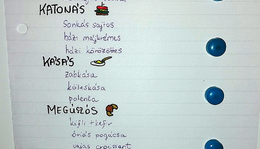 KATONÁS
Sonkás sajtos
házi májkrémes
házi körözöttes
KÁSÁS
zabkása
köleskása
polenta
MEGÚSZÓS
kifli + kefir
óriás pogácsa
vajas croissant